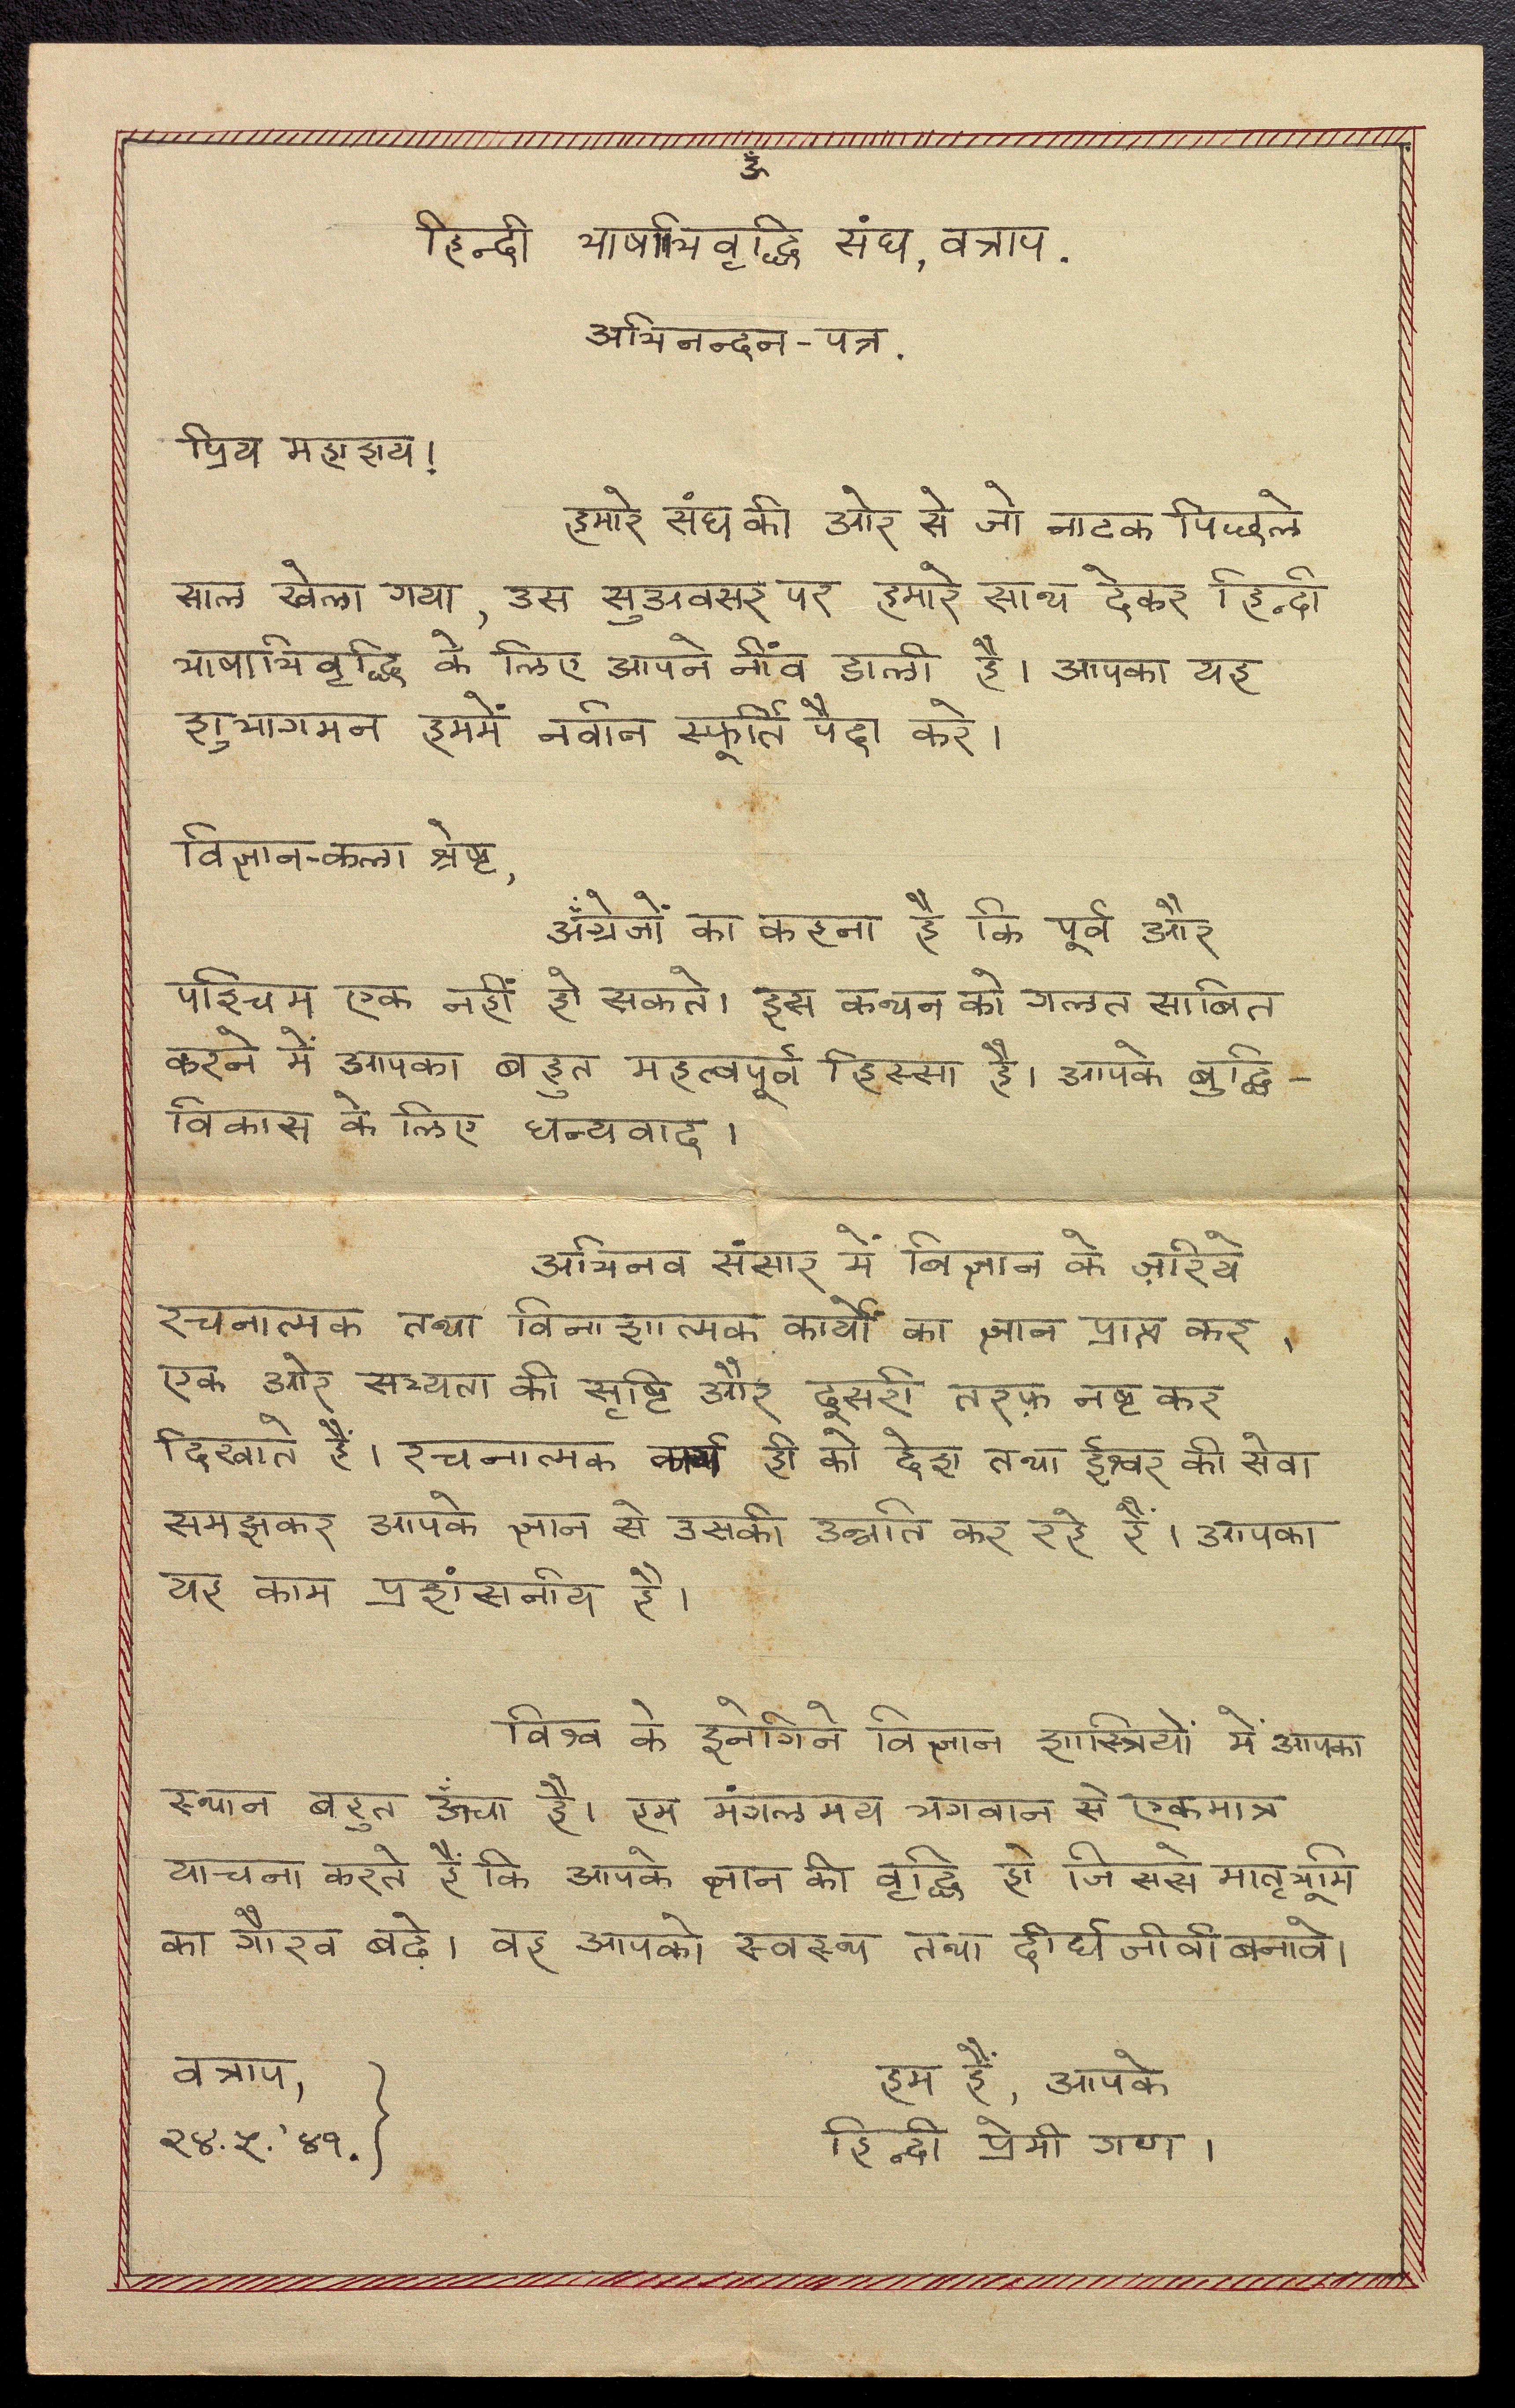 ॐ
हिन्दी भाषाभिवृद्धि संघ, वत्राप.
अभिनन्दन-पत्र.
प्रिय महाशय!
हमारे संघ की ओर से जो नाटक पिछले
साल खेला गया, उस सुअवसर पर हमारे साथ देकर हिन्दी
भाषाभिवृद्धि के लिए आपने नींव डाली है। आपका यह
शुभागमन हममें नवीन स्फूर्ति पैदा करे।
विज्ञान-कला श्रेष्ट,
अँग्रेजों का कहना है कि पूर्व और
पश्चिम एक नहीं हो सकते। इस कथन को गलत साबित
करने में आपका बहुत महत्वपूर्व हिस्सा है। आपके बुद्धि-
विकास के लिए धन्यवाद।
अभिनव संसार में विज्ञान के ज़रिये
रचनात्मक तथा विनाशात्मक कार्यों का ज्ञान प्राप्त कर,
एक ओर सभ्यता की सृष्टि और दूसरी तरफ़ नष्ट कर
दिखाते हैं। रचनात्मक कार्य ही को देश तथा ईश्वर की सेवा
समझकर आपके ज्ञान से उसकी उन्नति कर रहे हैं। आपका
यह काम प्रशंसनीय है।
विश्व के इनेगिने विज्ञान शास्त्रियों में आपका
स्थान बहुत ऊँचा है। हम मंगलमय भगवान से एकमात्र
याचना करते हैं कि आपके ज्ञान की वृद्धि हो जिससे मातृभूमि
का गौरव बढ़े। वह आपको स्वस्थ तथा दीर्घजीवी बनावे।
वत्राप,
२४.५.'४१.
हम हैं, आपके
हिन्दी प्रेमी गण।